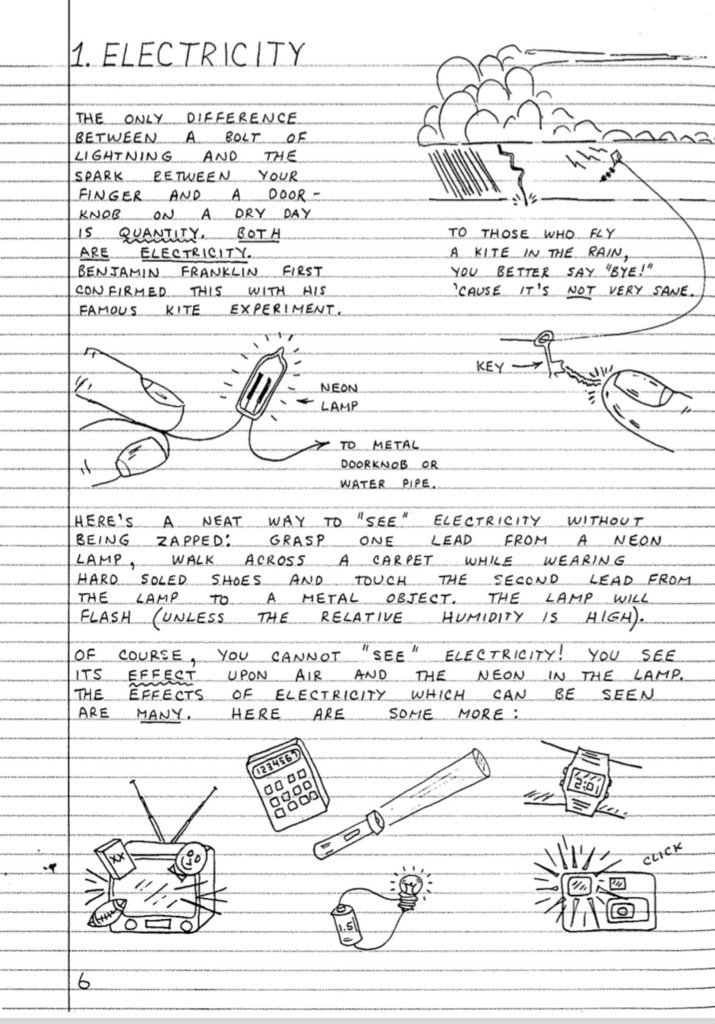 1. ELECTRICITY
THE ONLY DIFFERENCE
BETWEEN A BOLT OF
LIGHTNING AND THE
SPARK BETWEEN YOUR
FINGER AND A DOOR-
KNOB ON A DRY DAY
IS QUANTITY. BOTH
ARE ELECTRICITY.
BENJAMIN FRANKLIN FIRST
CONFIRMED THIS WITH HIS
FAMOUS KITE EXPERIMENT.
TO THOSE WHO FLY
A KITE IN THE RAIN,
YOU BETTER SAY "BYE!"
'CAUSE IT'S NOT VERY SANE.
KEY
NEON
LAMP
TO METAL
DOORKNOB OR
WATER PIPE.
HERE'S A NEAT WAY TO "SEE" ELECTRICITY WITHOUT
BEING ZAPPED: GRASP ONE LEAD FROM A NEON
LAMP, WALK ACROSS A CARPET WHILE WEARING
HARD SOLED SHOES AND TOUCH THE SECOND LEAD FROM
THE LAMP TO A METAL OBJECT. THE LAMP WILL
FLASH (UNLESS THE RELATIVE HUMIDITY IS HIGH).
OF COURSE, YOU CANNOT "SEE" ELECTRICITY! YOU SEE
ITS EFFECT UPON AIR AND THE NEON IN THE LAMP.
THE EFFECTS OF ELECTRICITY WHICH CAN BE SEEN
ARE MANY. HERE ARE SOME MORE:
1234567
2:01
XX
1.5
CLICK
6